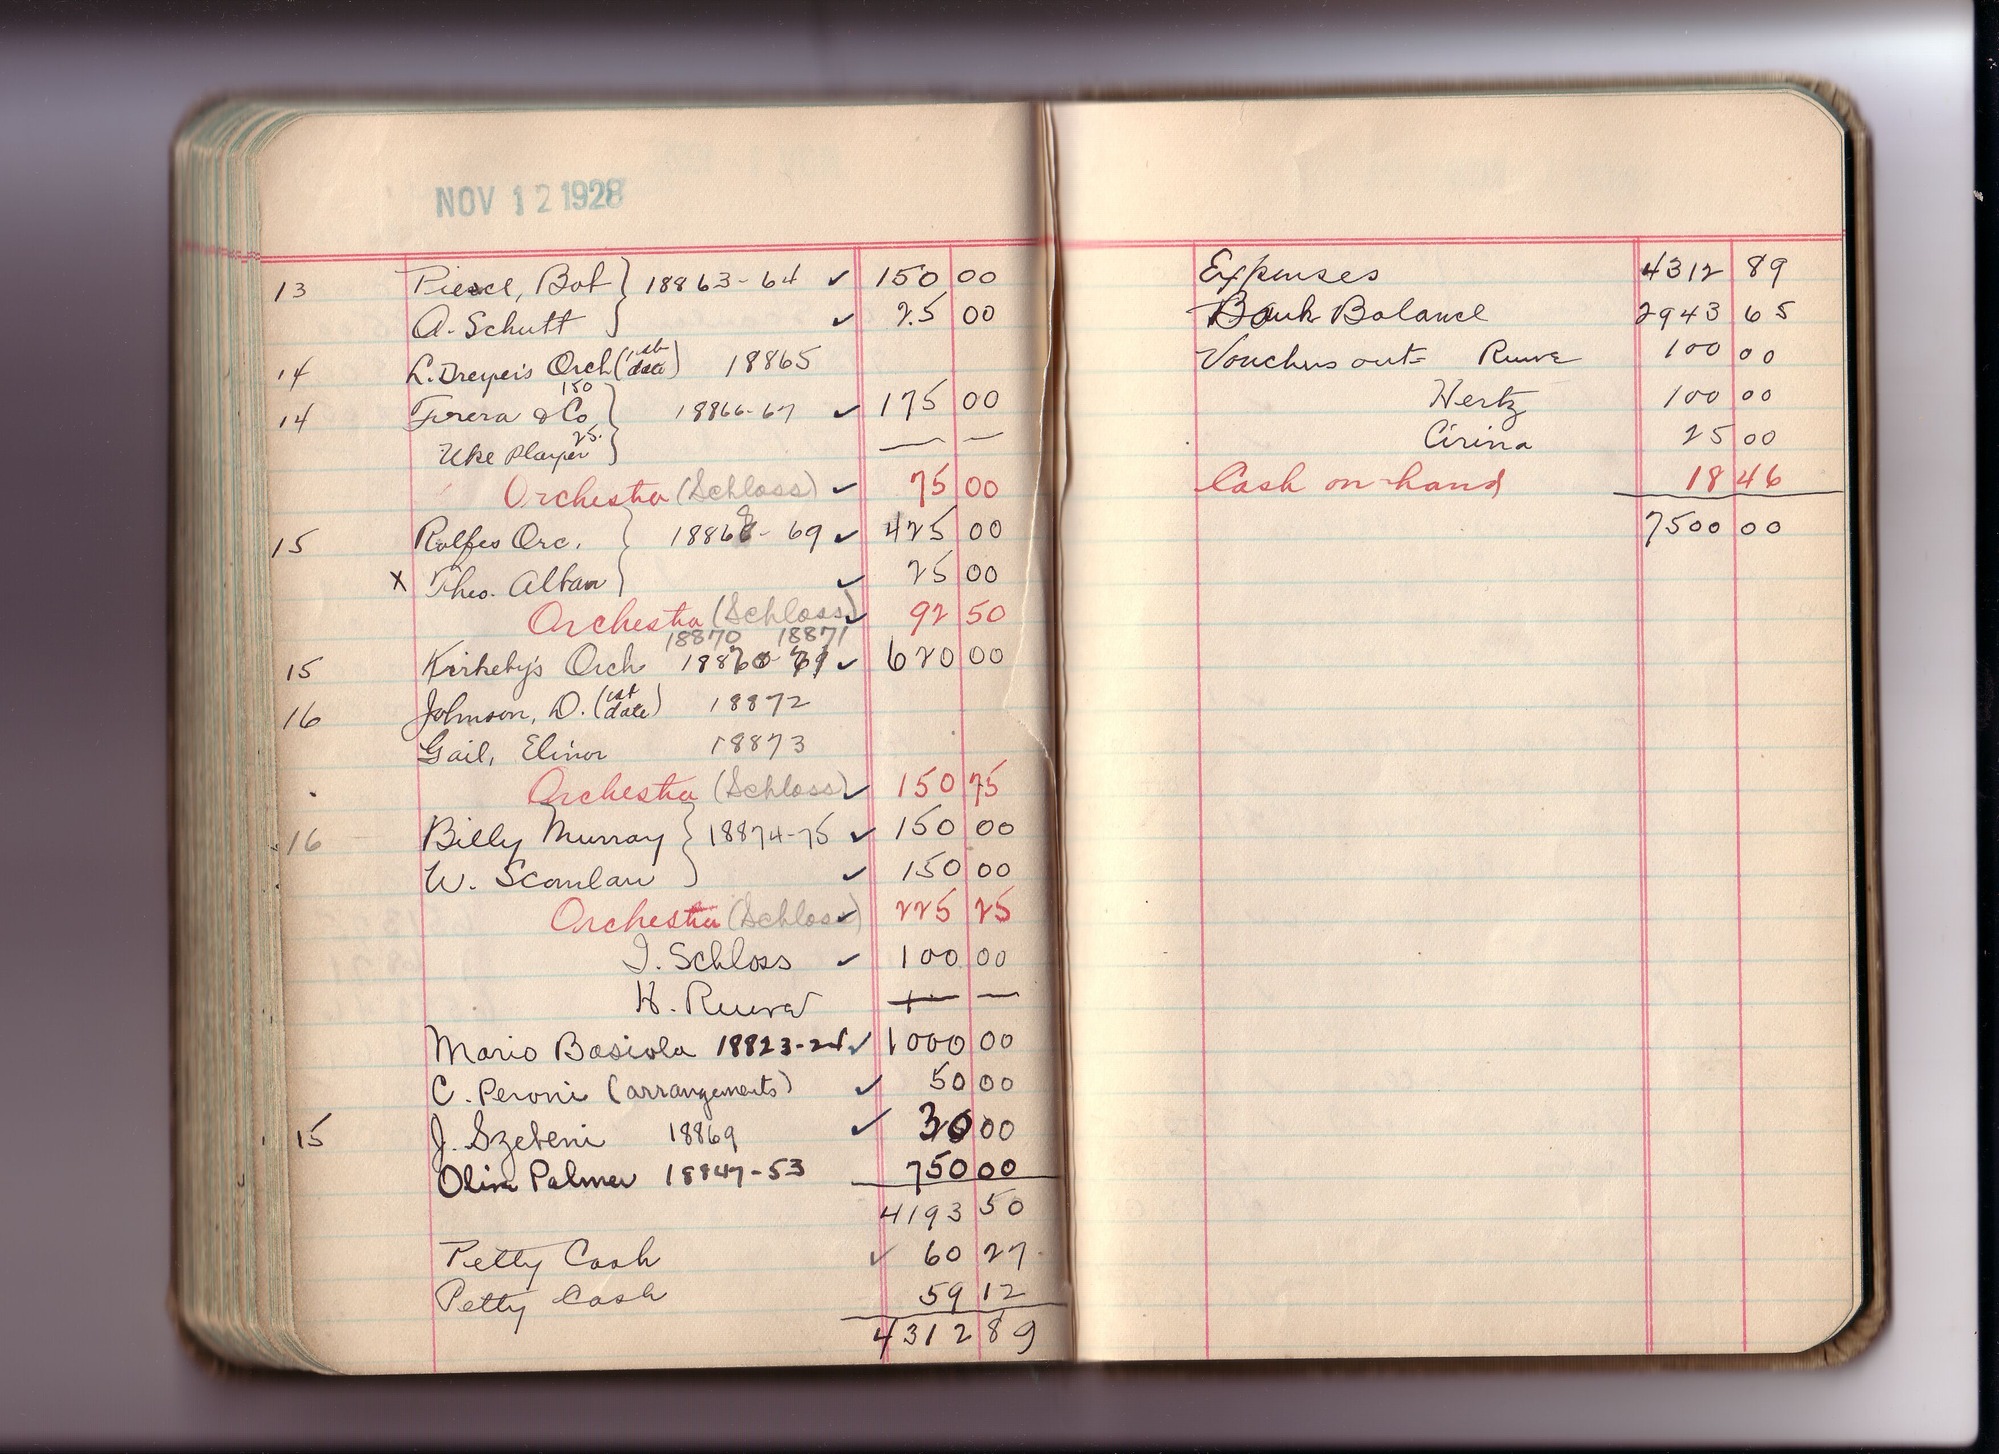 NOV 12 1928
13 Pierce, Bob } 18863-64 ✓ 150 00
A. Schutt ✓ 25 00
14 L. Dreyer's Orch (1st date) 18865
14 Ferera & Co 150 } 18866-67 ✓ 175 00
Uke Player 25. — —
Orchestra (Schloss) ✓ 75 00
15 Rolfes Orc. } 18868-69 ✓ 425 00
X Theo. Alban ✓ 25 00
Orchestra (Schloss) ✓ 92 50
18870 18871
15 Kirkeby's Orch ✓ 620 00
16 Johnson, D. (1st date) 18872
Gail, Elinor 18873
Orchestra (Schloss) ✓ 150 75
16 Billy Murray } 18874-75 ✓ 150 00
W. Scanlan ✓ 150 00
Orchestra (Schloss) ✓ 225 25
I. Schloss ✓ 100 00
H. Ruwe — —
Mario Basiola 18823-24 ✓ 1000 00
C. Peroni (arrangements) ✓ 50 00
15 J. Szebeni 18869 ✓ 30 00
Olive Palmer 18847-53 750 00
4193 50
Petty Cash ✓ 60 27
Petty Cash 59 12
4312 89
Expenses 4312 89
Bank Balance 2943 65
Vouchers out= Ruwe 100 00
Hertz 100 00
Cirina 25 00
Cash on hand 18 46
7500 00